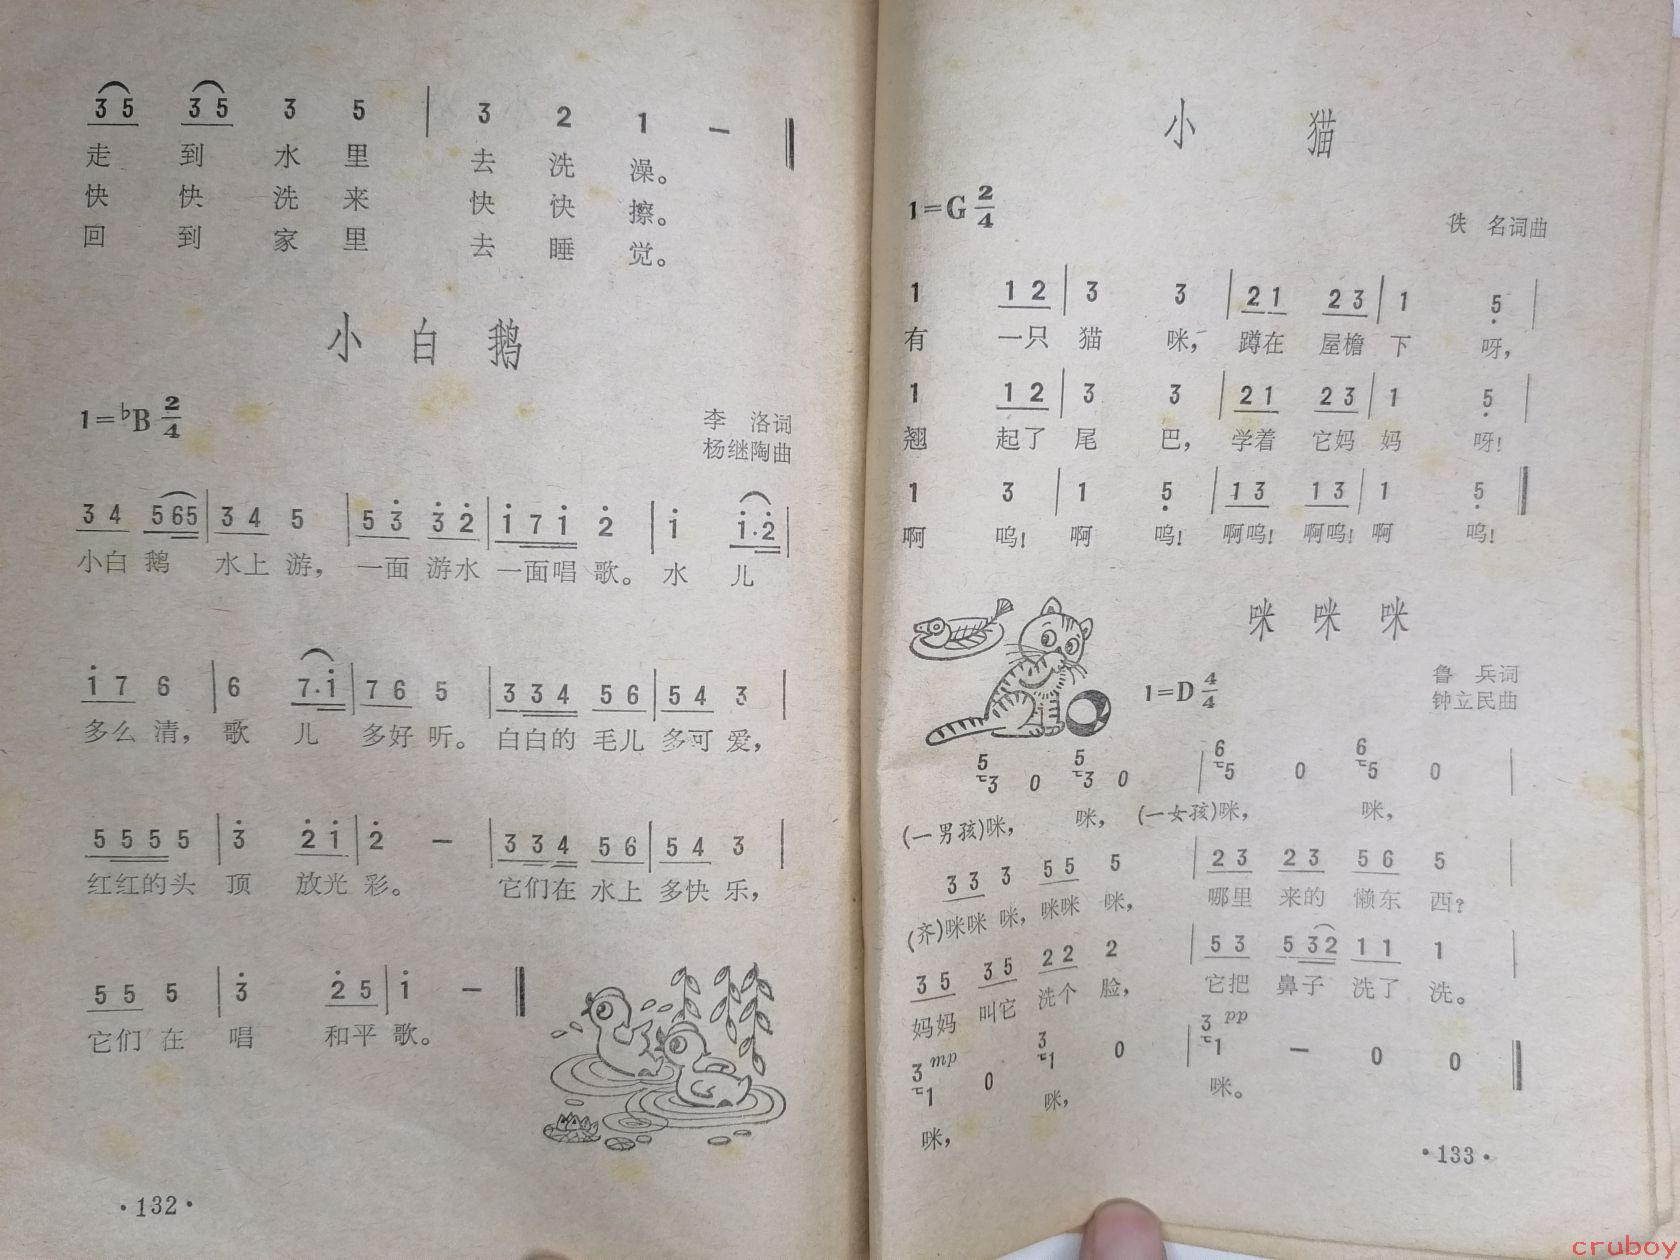 3 5 3 5 3 5 | 3 2 1 — ‖
走 到 水 里 去 洗 澡。
快 快 洗 来 快 快 擦。
回 到 家 里 去 睡 觉。
小白鹅
1=♭B 2/4
李 洛词
杨继陶曲
3 4 5 6 5 | 3 4 5 | 5 3̇ 3̇ 2̇ | 1̇ 7 1̇ 2̇ | 1̇ 1̇·2̇ |
小白 鹅 水上 游， 一面 游水 一面唱 歌。 水 儿
1̇ 7 6 | 6 7·1̇ | 7 6 5 | 3 3 4 5 6 | 5 4 3 |
多么 清， 歌 儿 多好 听。 白白的 毛儿 多可 爱，
5 5 5 5 | 3̇ 2̇ 1̇ | 2̇ — | 3 3 4 5 6 | 5 4 3 |
红红的头 顶 放光 彩。 它们在 水上 多快 乐，
5 5 5 | 3̇ 2̇ 5 | 1̇ — ‖
它们 在 唱 和平 歌。
·132·
小猫
1=G 2/4
佚 名词曲
1 1 2 | 3 3 | 2 1 2 3 | 1 5̣ |
有 一只 猫 咪， 蹲在 屋檐 下 呀，
1 1 2 | 3 3 | 2 1 2 3 | 1 5̣ |
翘 起了 尾 巴， 学着 它妈 妈 呀！
1 3 | 1 5̣ | 1 3 1 3 | 1 5̣ ‖
啊 呜！ 啊 呜！ 啊呜！ 啊呜！ 啊 呜！
咪咪咪
1=D 4/4
鲁 兵词
钟立民曲
5 3 0 5 3 0 | 6 5 0 6 5 0 |
(一男孩)咪， 咪， (一女孩)咪， 咪，
3 3 3 5 5 5 | 2 3 2 3 5 6 5
(齐)咪咪 咪， 咪咪 咪， 哪里 来的 懒东 西？
3 5 3 5 2 2 2 | 5 3 5 3 2 1 1 1 |
妈妈 叫它 洗个 脸， 它把 鼻子 洗了 洗。
3 mp 1 0 3 1 0 | 3 pp 1 — 0 0 ‖
咪， 咪， 咪。
·133·
cruboy